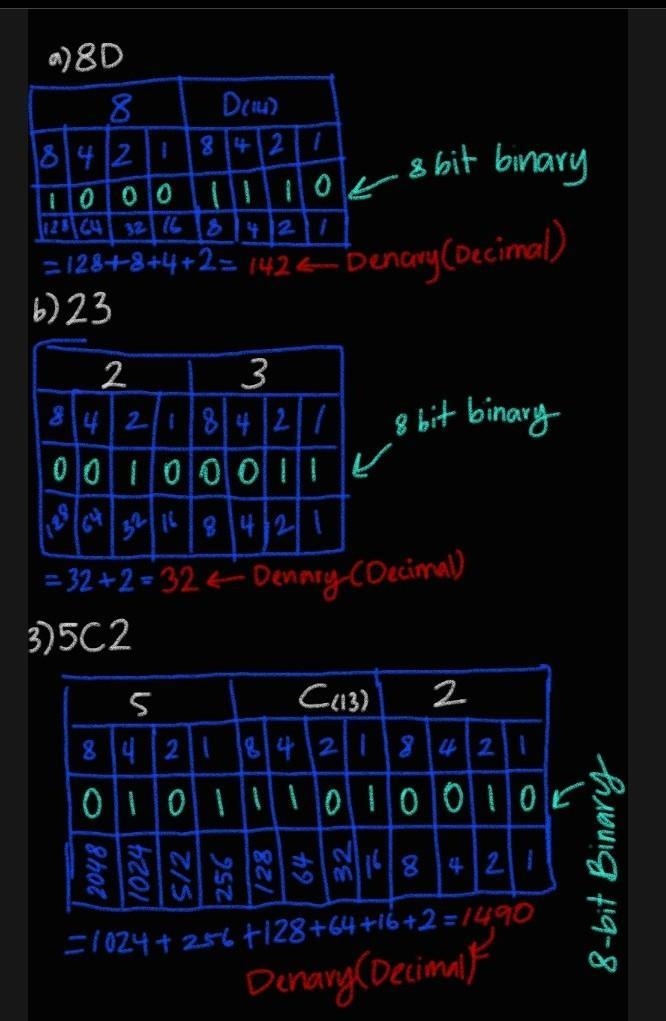 a)8D
8 D(14)
8 4 2 1 8 4 2 1
1 0 0 0 1 1 1 0 ← 8 bit binary
128 64 32 16 8 4 2 1
=128+8+4+2= 142 ← Denary(Decimal)
b)23
2 3
8 4 2 1 8 4 2 1
0 0 1 0 0 0 1 1 ← 8 bit binary
128 64 32 16 8 4 2 1
=32+2=32 ← Denary(Decimal)
3)5C2
5 C(13) 2
8 4 2 1 8 4 2 1 8 4 2 1
0 1 0 1 1 1 0 1 0 0 1 0 ← 8-bit Binary
2048 1024 512 256 128 64 32 16 8 4 2 1
=1024+256+128+64+16+2=1490
Denary(Decimal)